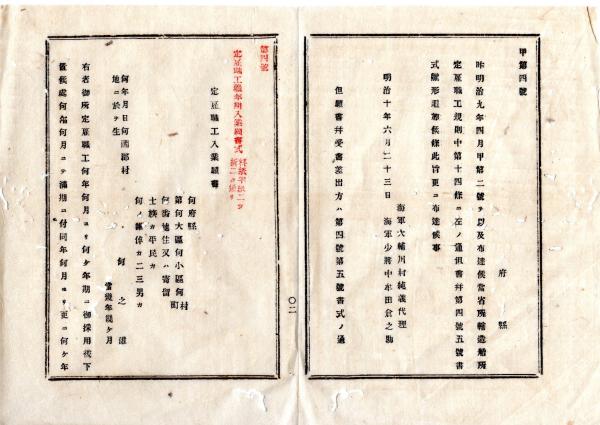 甲第四號
府縣
昨明治九年四月甲第二號ヲ以及布達候當省所轄造船所
定雇職工規則中第十四條ニ左ノ通但書幷第四號五號書
式雛形追加候條此旨更ニ布達候事
明治十年六月二十三日
海軍大輔川村純義代理
海軍少將中牟田倉之助
但願書幷受書差出方ハ第四號第五號書式ノ通
〇二
第四號
定雇職工滿年期入業願書式
定雇職工入業願書
何府縣
第何大區何小區何村町
何番地住又ハ寄留
士族カ平民カ
何ノ誰倅カ二三男カ
何年月日何國郡村
地ニ於テ生
何之誰
當幾年幾ケ月
右者御所定雇職工何年何月ヨリ何ケ年期ニ御採用被下
置候處何年何月ニテ滿期ニ付同年何月ヨリ更ニ何ケ年